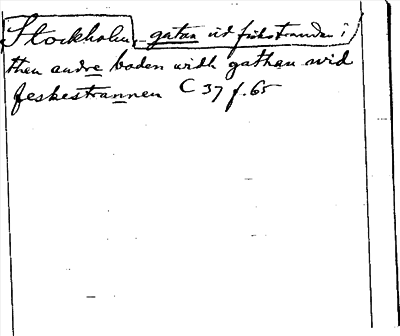 Stockholm, gatan vid fiskstranden i
then andre boden widh gathan wid
feskestrannen C 37 f. 65